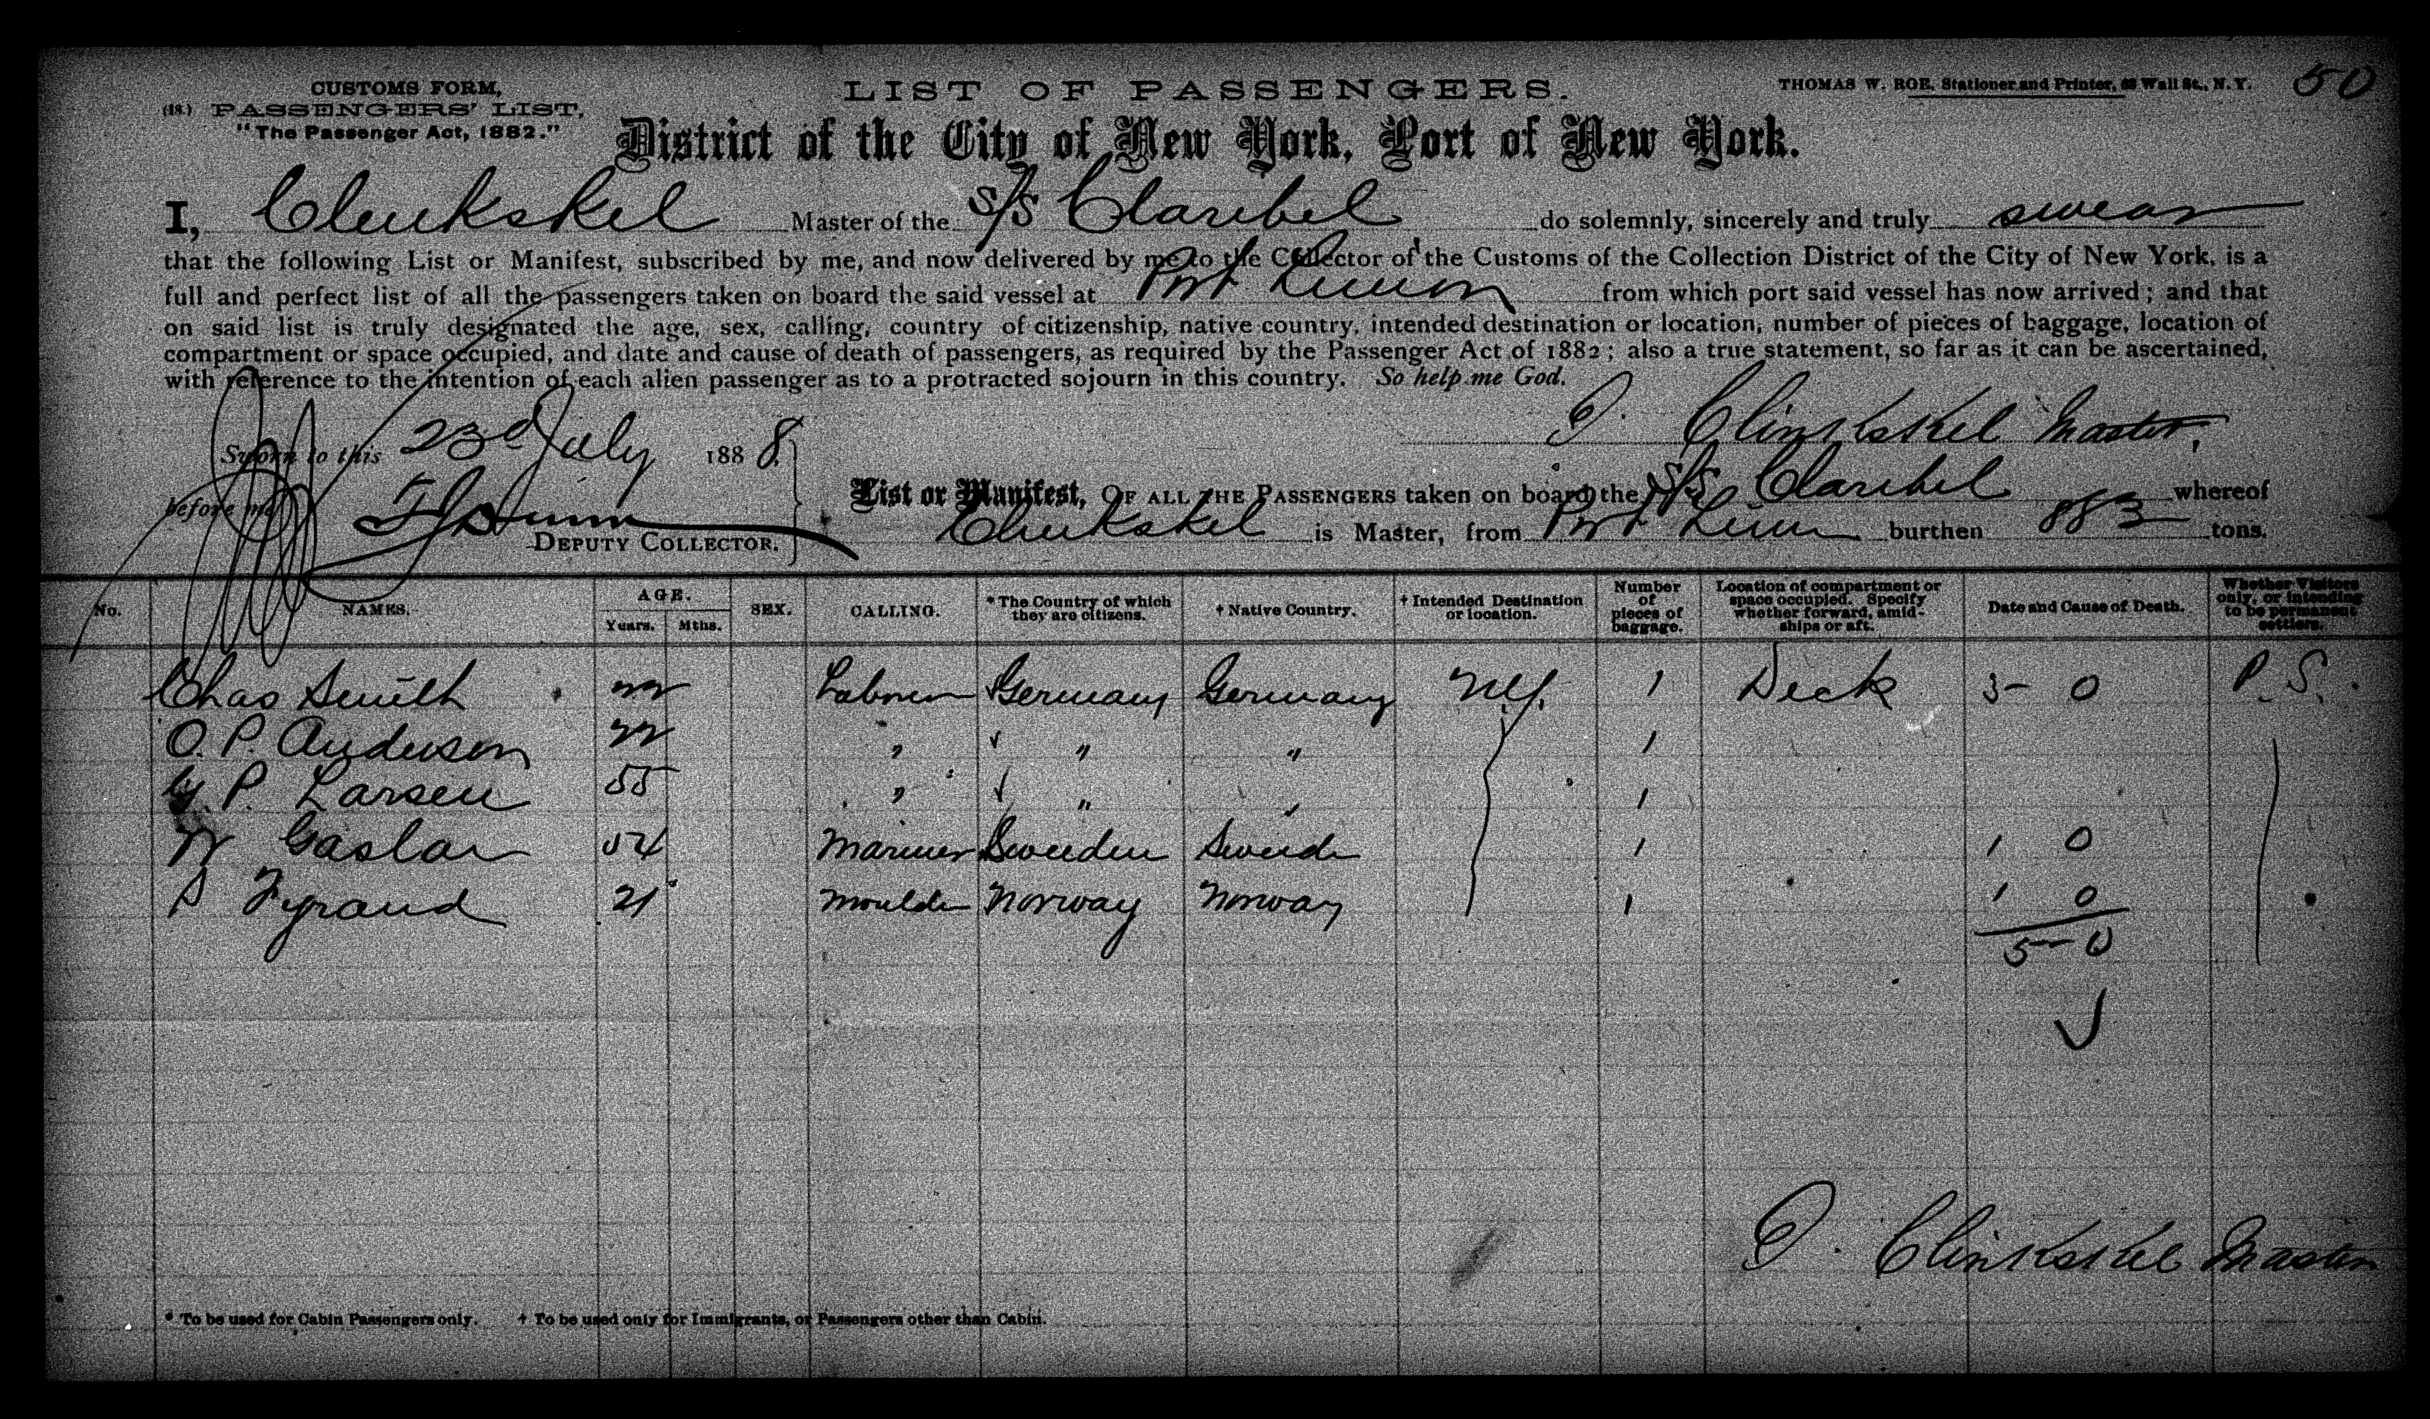 CUSTOMS FORM,
(18.) PASSENGERS' LIST,
"The Passenger Act, 1882."
LIST OF PASSENGERS.
THOMAS W. ROE, Stationer and Printer, Wall St., N. Y.
50
District of the City of New York, Port of New York.
I, Clinkskel Master of the S/S Claribel, do solemnly, sincerely and truly swear
that the following List or Manifest, subscribed by me, and now delivered by me to the Collector of the Customs of the Collection District of the City of New York, is a
full and perfect list of all the passengers taken on board the said vessel at Port Limon from which port said vessel has now arrived; and that
on said list is truly designated the age, sex, calling, country of citizenship, native country, intended destination or location, number of pieces of baggage, location of
compartment or space occupied, and date and cause of death of passengers, as required by the Passenger Act of 1882; also a true statement, so far as it can be ascertained,
with reference to the intention of each alien passenger as to a protracted sojourn in this country. So help me God.
Clinkskel Master,
Sworn to this 23d July 1888.
before me
DEPUTY COLLECTOR.
List or Manifest, OF ALL THE PASSENGERS taken on board the S/S Claribel whereof
Clinkskel is Master, from Port Limon burthen 883 tons.
No. NAMES. AGE. Years. Mths. SEX. CALLING. * The Country of which they are citizens. † Native Country. † Intended Destination or location. Number of pieces of baggage. Location of compartment or space occupied. Specify whether forward, amidships or aft. Date and Cause of Death. Whether Visitors only, or intending to be permanent settlers.
Chas Smith 22 Laborer Germany Germany N.Y. 1 Deck 3 - 0 P. S.
O. P. Anderson 22 " " " 1
P. Larsen 55 " " " 1
Gaslar 54 Mariner Sweeden Sweede 1 1 0
Fyrand 21 Moulder Norway Norway 1 1 0
5 - 0
Clinkskel Master
* To be used for Cabin Passengers only. † To be used only for Immigrants, or Passengers other than Cabin.